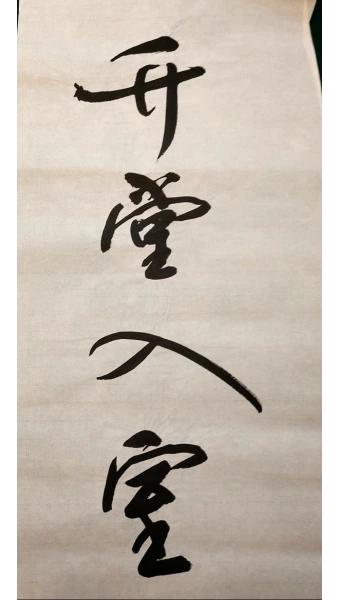 升堂入室